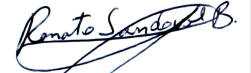 Renato Sandoval B.